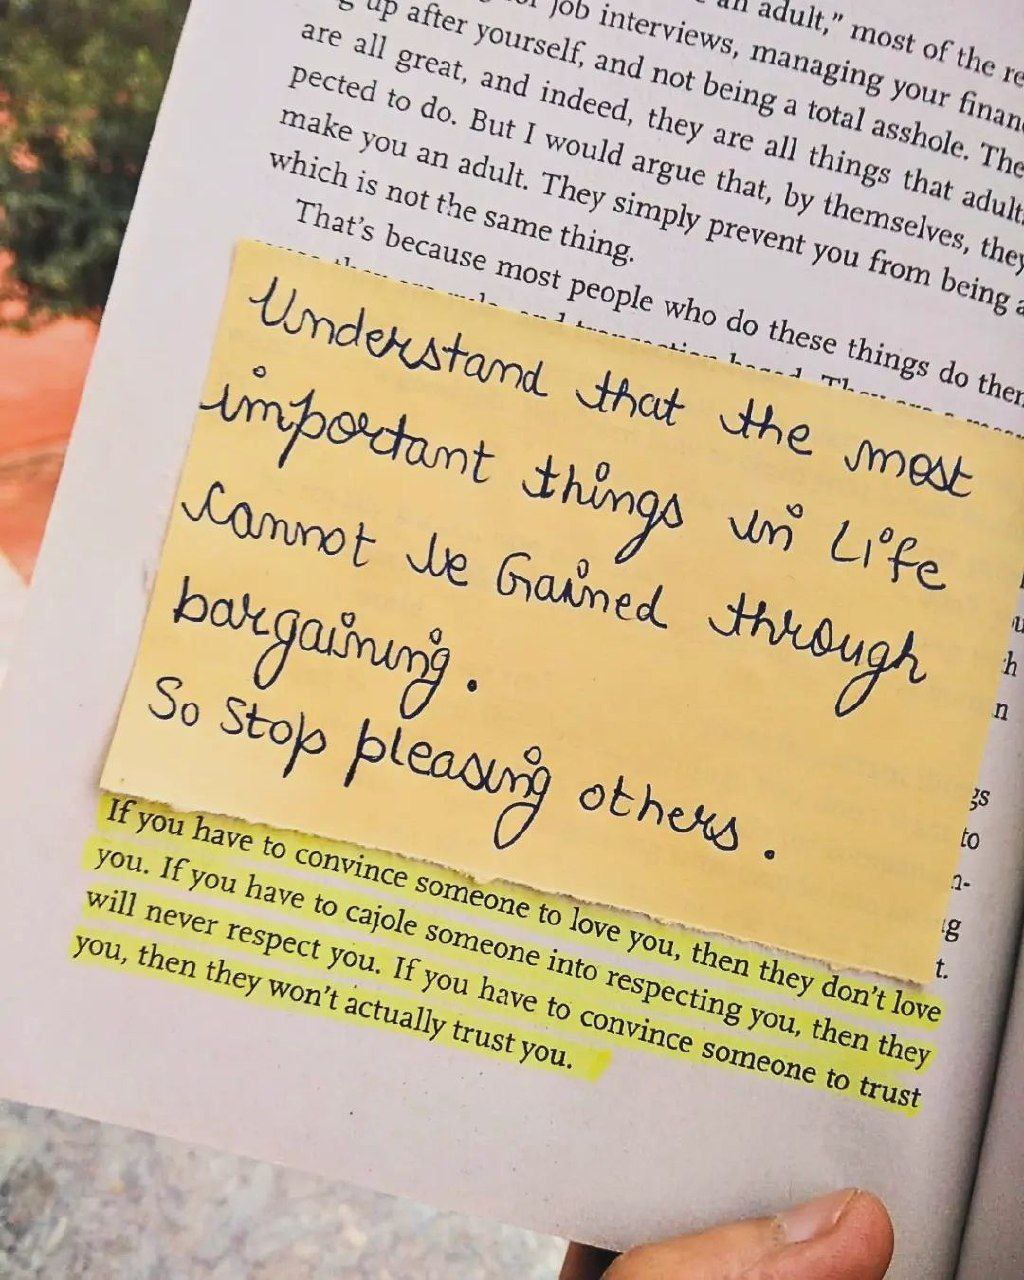 an adult,” most of the re
up after yourself, and not being a total asshole. The
job interviews, managing your financ
are all great, and indeed, they are all things that adult
pected to do. But I would argue that, by themselves, they
make you an adult. They simply prevent you from being a
which is not the same thing.
That’s because most people who do these things do then
Understand that the most
important things in Life
cannot be Gained through
bargaining.
So Stop pleasing others.
gs
to
n-
t.
If you have to convince someone to love you, then they don’t love
you. If you have to cajole someone into respecting you, then they
will never respect you. If you have to convince someone to trust
you, then they won’t actually trust you.